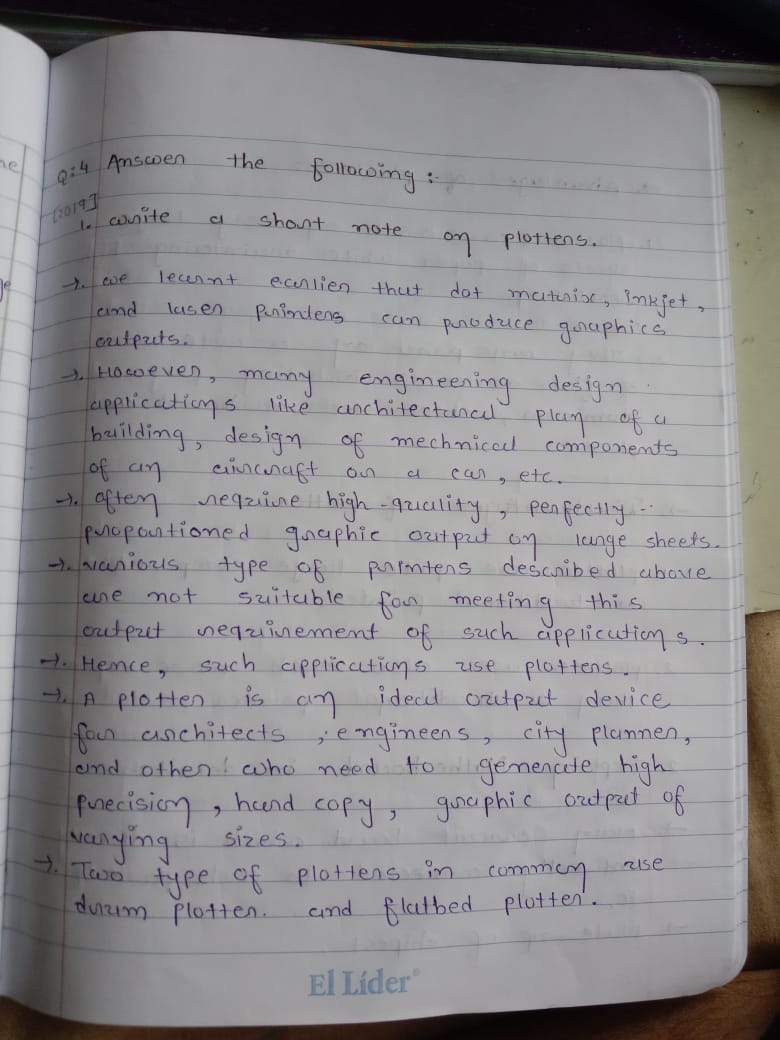 Q:4 Answer the following :-
[2019]
1. write a short note on plotters.
→. we learnt earlier that dot matrix, inkjet,
and laser prinders can produce graphics
outputs.
→. However, many engineering design
applications like architectural plan of a
building, design of mechnical components
of an aircraft or a car, etc.
→. often require high-quality, perfectly
proportioned graphic output on large sheets.
→. various type of printers described above
are not suitable for meeting this
output requirement of such applications.
→. Hence, such applications use plotters.
→. A plotter is an ideal output device
for architects, engineers, city planner,
and other who need to generate high
precision, hard copy, graphic output of
varying sizes.
→. Two type of plotters in common use
durum plotter. and flatbed plotter.
El Líder